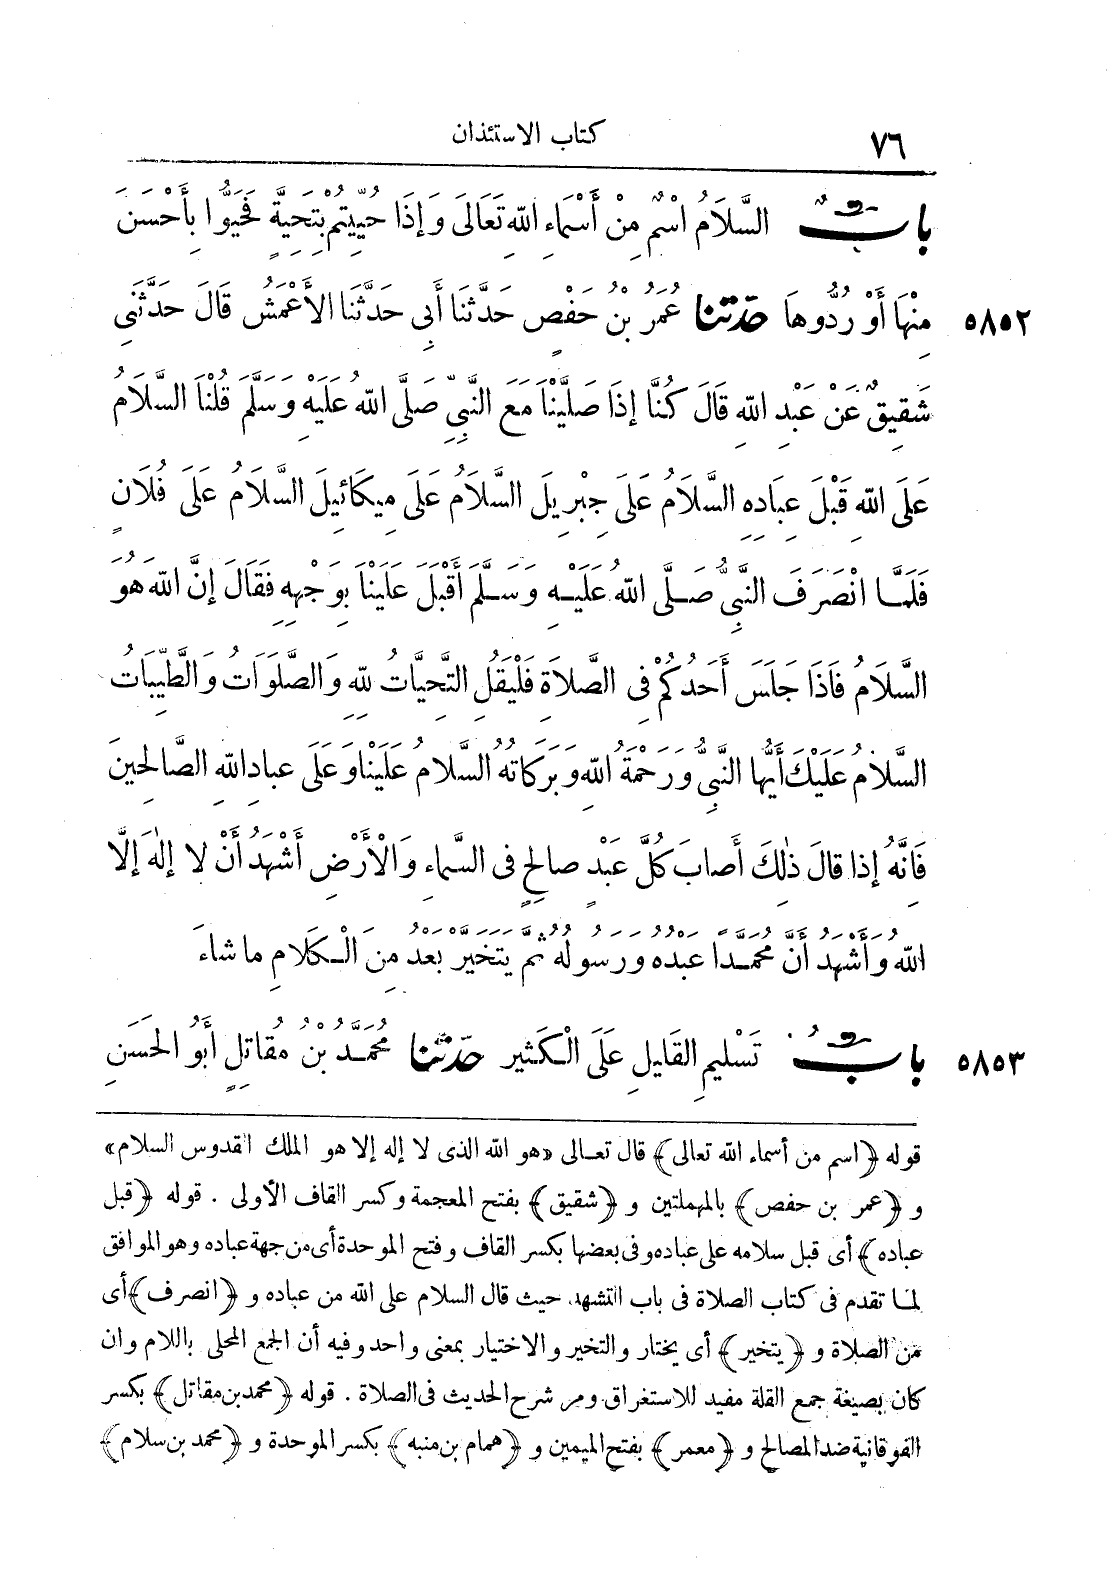 ٧٦ كتاب الاستئذان
بابٌ السَّلَامُ اسْمٌ مِنْ أَسْمَاءِ اللّهِ تَعَالَى وَإِذَا حُيِّيتُمْ بِتَحِيَّةٍ فَحَيُّوا بِأَحْسَنَ
٥٨٥٢ مِنْهَا أَوْ رُدُّوهَا حدثنا عُمَرُ بْنُ حَفْصٍ حَدَّثَنَا أَبِي حَدَّثَنَا الأَعْمَشُ قَالَ حَدَّثَنِي
شَقِيقٌ عَنْ عَبْدِ اللّهِ قَالَ كُنَّا إِذَا صَلَّيْنَا مَعَ النَّبِيِّ صَلَّى اللّهُ عَلَيْهِ وَسَلَّمَ قُلْنَا السَّلَامُ
عَلَى اللّهِ قَبْلَ عِبَادِهِ السَّلَامُ عَلَى جِبْرِيلَ السَّلَامُ عَلَى مِيكَائِيلَ السَّلَامُ عَلَى فُلَانٍ
فَلَمَّا انْصَرَفَ النَّبِيُّ صَلَّى اللّهُ عَلَيْهِ وَسَلَّمَ أَقْبَلَ عَلَيْنَا بِوَجْهِهِ فَقَالَ إِنَّ اللّهَ هُوَ
السَّلَامُ فَاذَا جَلَسَ أَحَدُكُمْ فِي الصَّلَاةِ فَلْيَقُلِ التَّحِيَّاتُ لِلّهِ وَالصَّلَوَاتُ وَالطَّيِّبَاتُ
السَّلَامُ عَلَيْكَ أَيُّهَا النَّبِيُّ وَرَحْمَةُ اللّهِ وَبَرَكَاتُهُ السَّلَامُ عَلَيْنَا وَعَلَى عِبَادِ اللّهِ الصَّالِحِينَ
فَانَّهُ إِذَا قَالَ ذٰلِكَ أَصَابَ كُلَّ عَبْدٍ صَالِحٍ فِي السَّمَاءِ وَالْأَرْضِ أَشْهَدُ أَنْ لَا إِلٰهَ إِلَّا
اللّهُ وَأَشْهَدُ أَنَّ مُحَمَّدًا عَبْدُهُ وَرَسُولُهُ ثُمَّ يَتَخَيَّرُ بَعْدُ مِنَ الْكَلَامِ مَا شَاءَ
٥٨٥٣ بابُ تَسْلِيمِ القَلِيلِ عَلَى الْكَثِيرِ حدثنا مُحَمَّدُ بْنُ مُقَاتِلٍ أَبُو الْحَسَنِ
قوله ﴿اسم من أسماء الله تعالى﴾ قال تعالى «هو الله الذى لا إله إلا هو الملك القدوس السلام»
و ﴿عمر بن حفص﴾ بالمهملتين و ﴿شقيق﴾ بفتح المعجمة وكسر القاف الأولى . قوله ﴿قبل
عباده﴾ أى قبل سلامه على عباده وفى بعضها بكسر القاف وفتح الموحدة أى من جهة عباده وهو الموافق
لما تقدم فى كتاب الصلاة فى باب التشهد حيث قال السلام على الله من عباده و ﴿انصرف﴾ أى
من الصلاة و ﴿يتخير﴾ أى يختار والتخير والاختيار بمعنى واحد وفيه أن الجمع المحلى باللام وان
كان بصيغة جمع القلة مفيد للاستغراق ومر شرح الحديث فى الصلاة . قوله ﴿محمد بن مقاتل﴾ بكسر
الفوقانية ضد المصالح و ﴿معمر﴾ بفتح الميمين و ﴿همام بن منبه﴾ بكسر الموحدة و ﴿محمد بن سلام﴾